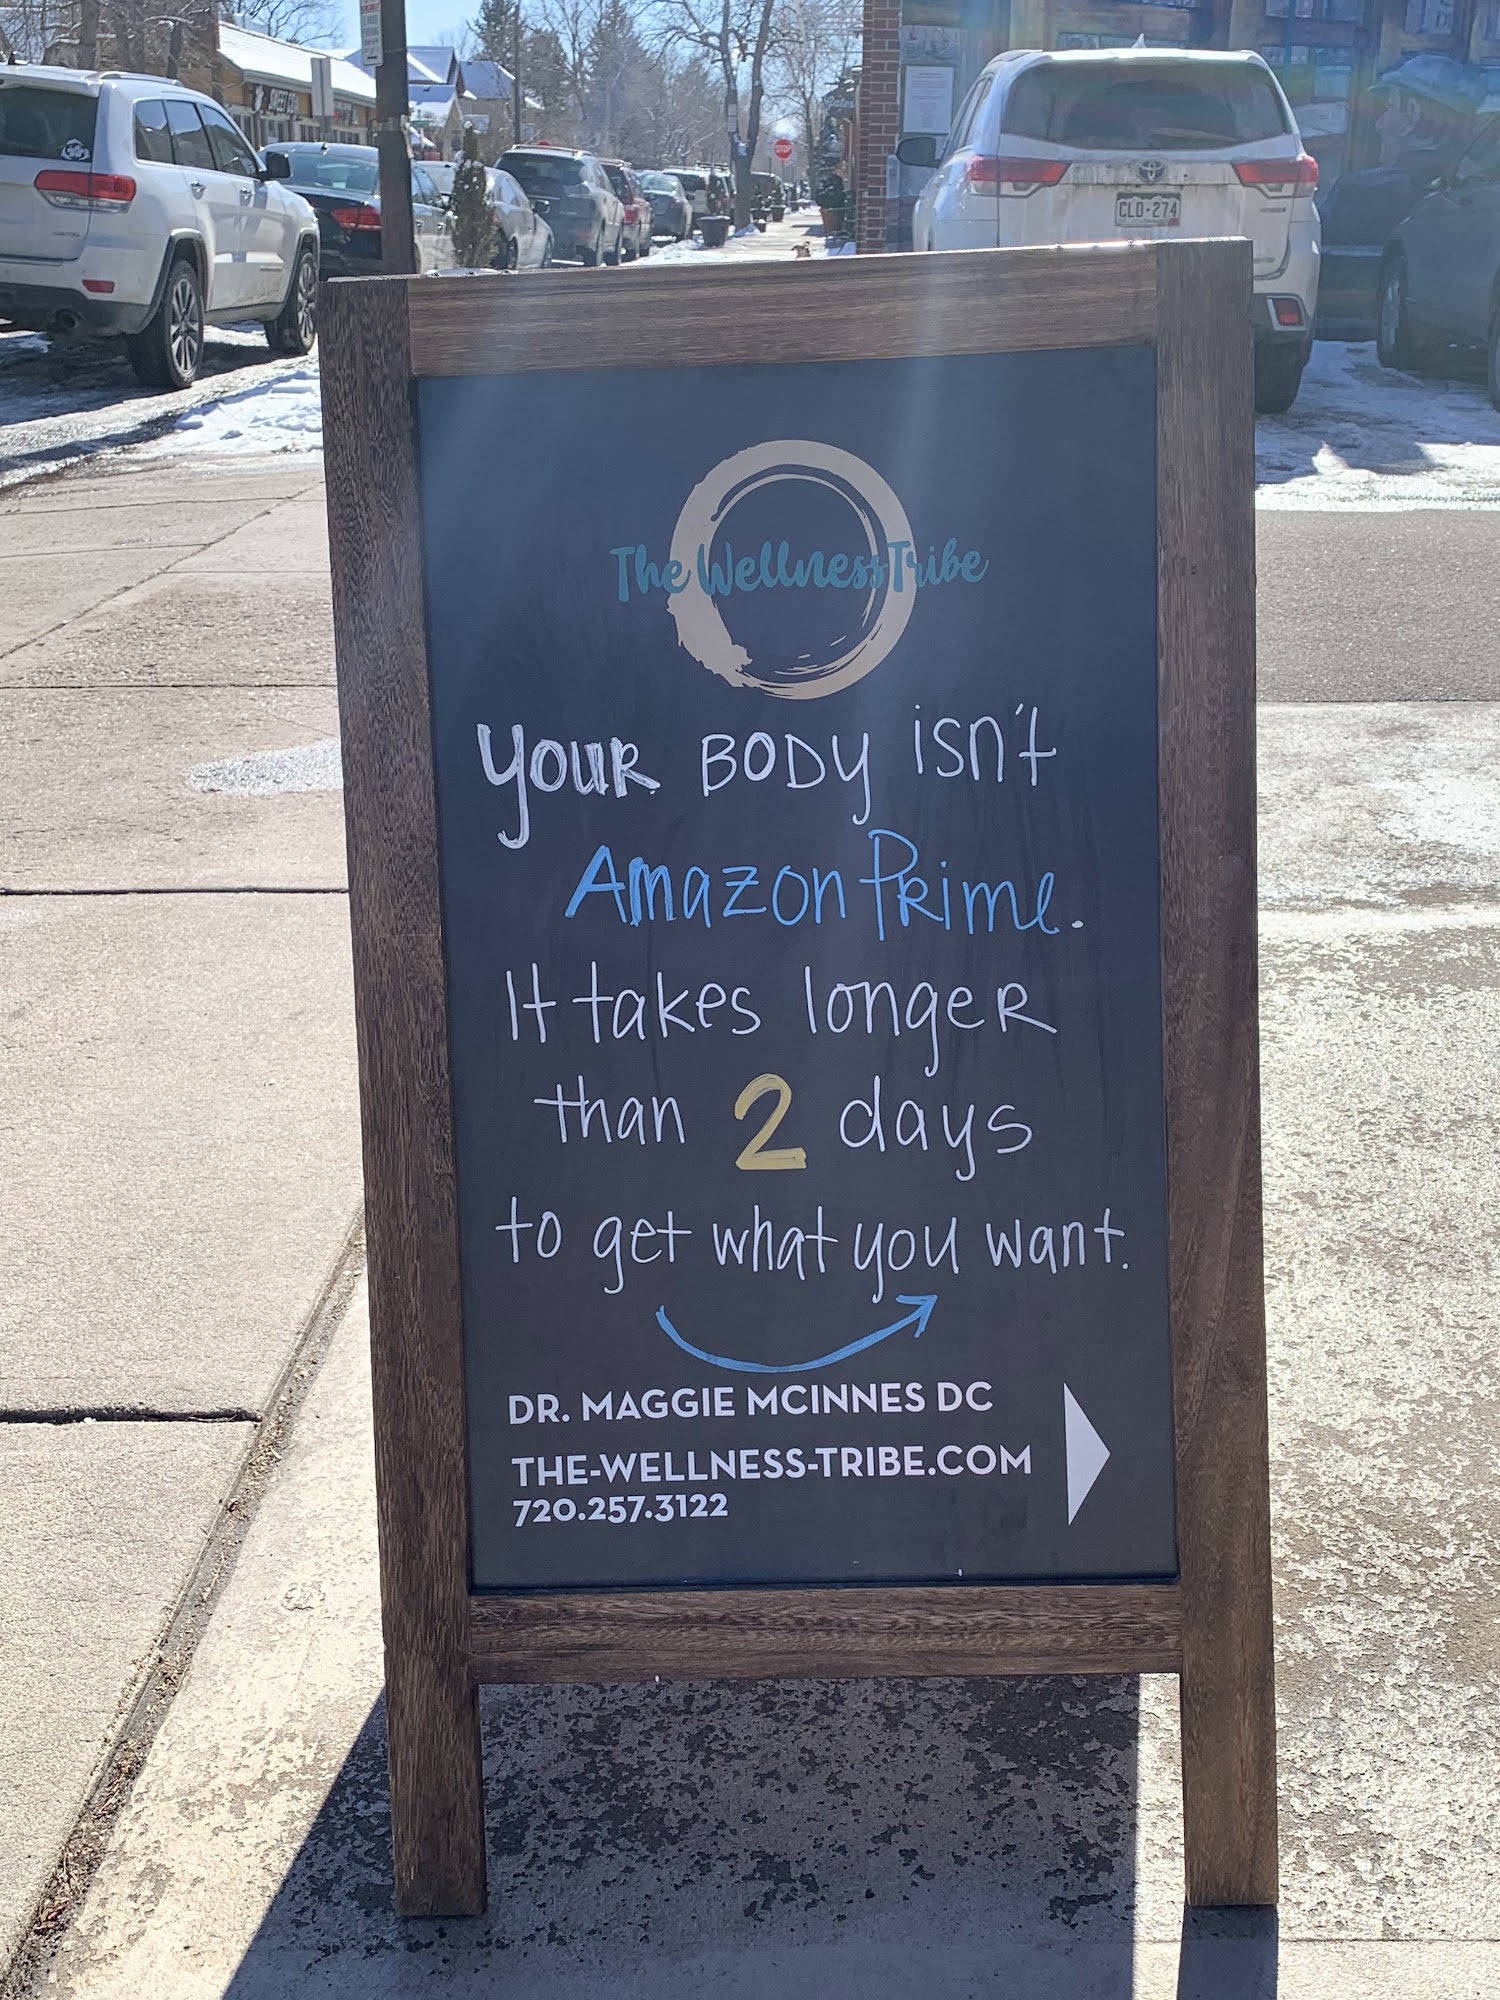 The Wellness Tribe
Your BODY isn't
Amazon Prime.
It takes longer
than 2 days
to get what you want.
DR. MAGGIE MCINNES DC
THE-WELLNESS-TRIBE.COM
720.257.3122
CLO-274
STOP